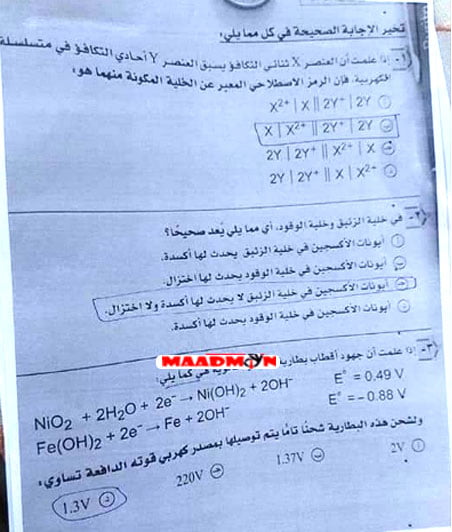 تخير الإجابة الصحيحة في كل مما يلي:
١- إذا علمت أن العنصر X ثنائي التكافؤ يسبق العنصر Y أحادي التكافؤ في متسلسلة
الكهربية، فإن الرمز الاصطلاحي المعبر عن الخلية المكونة منهما هو:
أ X²⁺ | X || 2Y⁺ | 2Y
ب X | X²⁺ || 2Y⁺ | 2Y
ج 2Y | 2Y⁺ || X²⁺ | X
د 2Y | 2Y⁺ || X | X²⁺
٢- في خلية الزئبق وخلية الوقود، أي مما يلي يُعد صحيحًا؟
أ أيونات الأكسجين في خلية الزئبق يحدث لها أكسدة.
ب أيونات الأكسجين في خلية الوقود يحدث لها اختزال.
ج أيونات الأكسجين في خلية الزئبق لا يحدث لها أكسدة ولا اختزال.
د أيونات الأكسجين في خلية الوقود يحدث لها أكسدة.
MAADMON
٣- إذا علمت أن جهود أقطاب بطارية هي كما يلي:
NiO₂ + 2H₂O + 2e⁻ → Ni(OH)₂ + 2OH⁻ E° = 0.49 V
Fe(OH)₂ + 2e⁻ → Fe + 2OH⁻ E° = -0.88 V
ولشحن هذه البطارية شحنًا تامًا يتم توصيلها بمصدر كهربي قوته الدافعة تساوي:
أ 2V ب 1.37V ج 220V د 1.3V